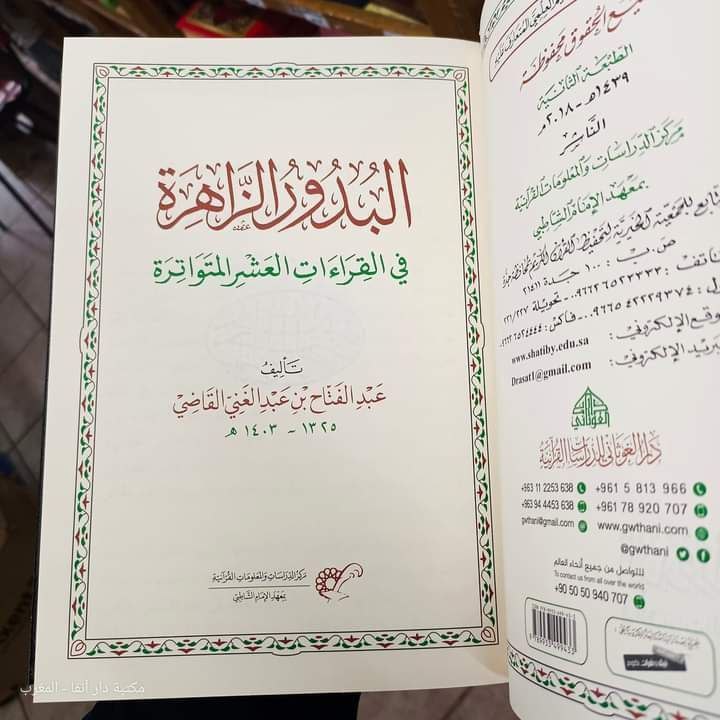 البُدُورُ الزَّاهِرَة
في القِرَاءَاتِ العَشْرِ المُتَوَاتِرَة
تَأْلِيفُ
عَبْدِ الفَتَّاحِ بْنِ عَبْدِ الغَنِيِّ القَاضِي
١٣٢٥ - ١٤٠٣ هـ
مَركز الدِّرَاسَاتِ وَالمَعلُومَاتِ القُرآنِيَّةِ
بِمَعهَدِ الإِمَامِ الشَّاطِبِيِّ
الحُقُوق مَحْفُوظَة
الطَّبعَة الثَّانِيَة
١٤٣٩هـ - ٢٠١٨م
النَّاشِر
مَركز الدِّرَاسَاتِ وَالمَعلُومَاتِ القُرآنِيَّةِ
بِمَعهَدِ الإِمَامِ الشَّاطِبِي
للجمعية الخيرية لتحفيظ القرآن الكريم
ص.ب : ١٠٠ جدة ٢١٥١١
www.shatiby.edu.sa
Drasat1@gmail.com
الغوثاني
دار الغوثاني للدراسات القرآنية
+963 11 2253 638 +961 5 813 966
+963 94 4453 638 +961 78 920 707
gwthani@gmail.com www.gwthani.com
@gwthani
للتواصل من جميع أنحاء العالم
To contact us from all over the world
+90 50 50 940 707
مكتبة دار أنفا - المغرب